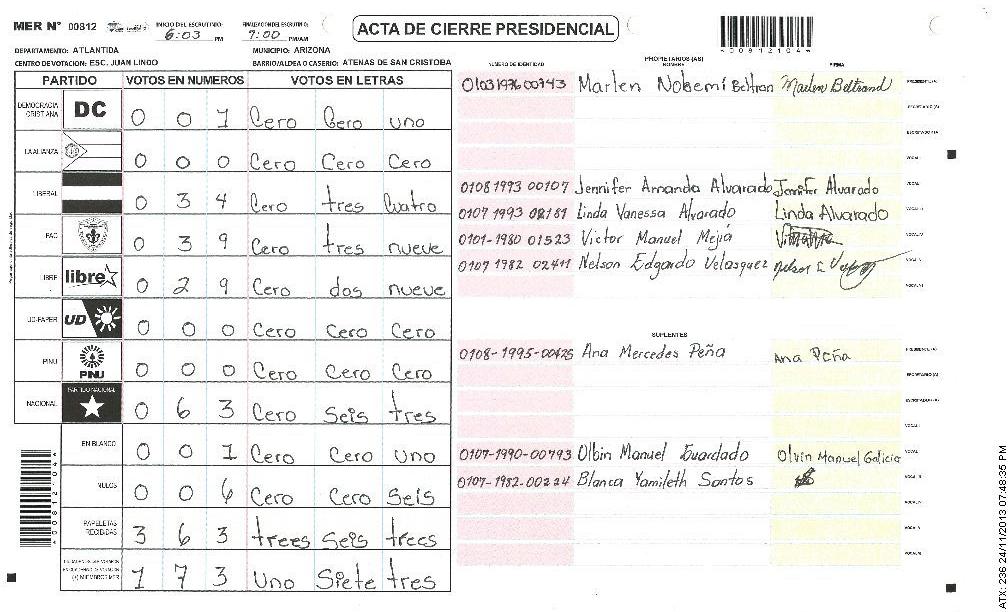 MER N° 00812 INICIO DEL ESCRUTINIO: 6:03 PM FINALIZACION DEL ESCRUTINIO: 7:00 PM/AM
ACTA DE CIERRE PRESIDENCIAL
*0081204*
DEPARTAMENTO: ATLANTIDA MUNICIPIO: ARIZONA
CENTRO DE VOTACION: ESC. JUAN LINDO BARRIO/ALDEA O CASERIO: ATENAS DE SAN CRISTOBA
PARTIDO VOTOS EN NUMEROS VOTOS EN LETRAS
DEMOCRACIA CRISTIANA DC 0 0 1 Cero Cero uno
LA ALIANZA 0 0 0 Cero Cero Cero
LIBERAL 0 3 4 Cero tres Cuatro
PAC 0 3 9 Cero tres nueve
LIBRE libre 0 2 9 Cero dos nueve
UD-FAPER UD 0 0 0 Cero Cero Cero
PINU PINU 0 0 0 Cero Cero Cero
NACIONAL PARTIDO NACIONAL 0 6 3 Cero Seis tres
EN BLANCO 0 0 1 Cero Cero uno
NULOS 0 0 6 Cero Cero Seis
PAPELETAS RECIBIDAS 3 6 3 trees Seis trees
(+) MIEMBROS MER 1 7 3 Uno Siete tres
*0081204*
PROPIETARIOS (AS)
NUMERO DE IDENTIDAD NOMBRE FIRMA
0103197600743 Marlen Nobemí Beltran Marlen Beltrand PRESIDENTE (A)
SECRETARIO (A)
ESCRUTADOR (A)
VOCAL I
0108 1993 00107 Jennifer Amanda Alvarado Jennifer Alvarado
0107 1993 02181 Linda Vanessa Alvarado Linda Alvarado
0101-1980 01523 Victor Manuel Mejia
0107 1982 02411 Nelson Edgardo Velasquez
SUPLENTES
0108-1995-00426 Ana Mercedes Peña Ana Peña PRESIDENTE (A)
SECRETARIO (A)
ESCRUTADOR (A)
VOCAL I
0107-1990-00793 Olbin Manuel Guardado Olvin Manuel Galicia
0107-1982-00224 Blanca Yamileth Santos
ATX: 236 24/11/2013 07:48:35 PM